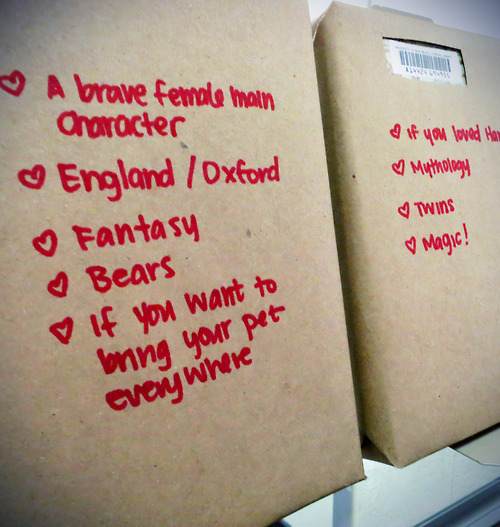 ♡ A brave female main
character
♡ England / Oxford
♡ Fantasy
♡ Bears
♡ If you want to
bring your pet
everywhere
♡ If you loved
♡ Mythology
♡ Twins
♡ Magic!